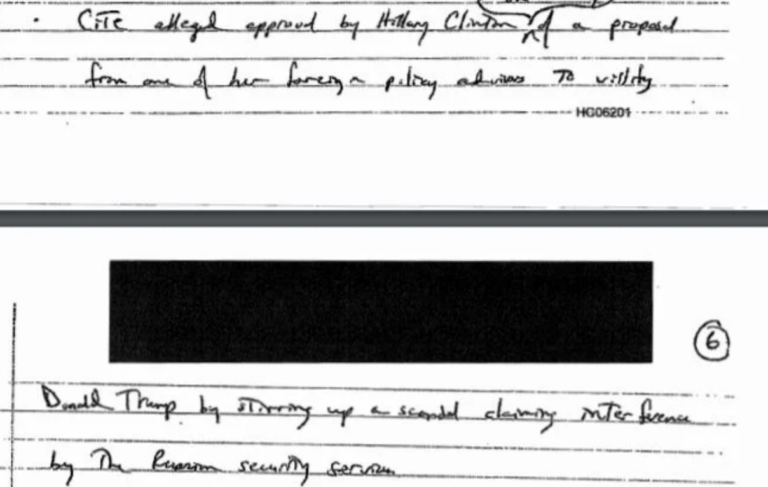 • Cite alleged approval by Hillary Clinton of a proposal
from one of her foreign policy advisors to vilify
HG06201
6
Donald Trump by stirring up a scandal claiming interference
by the Russian security services